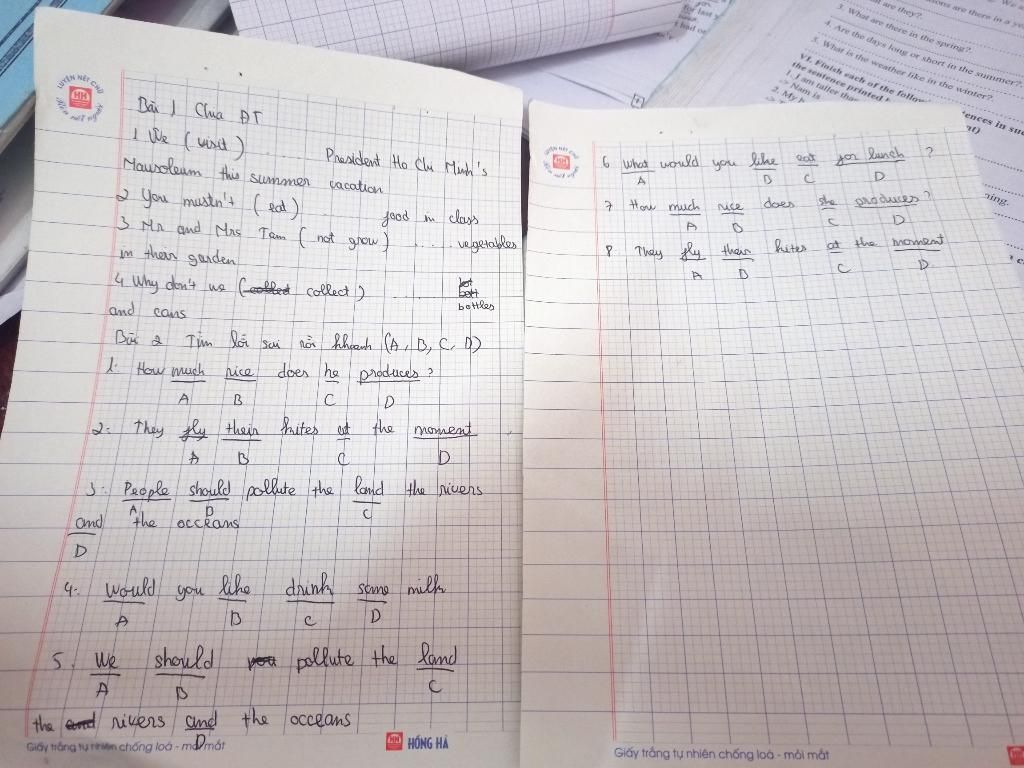 LUYỆN NÉT CHỮ
HH
Rèn nết người
Bài 1 Chia ĐT
1 We ( visit ) ........ President Ho Chi Minh's
Mausoleum this summer vacation
2 You mustn't ( eat ) ........ food in class
3 Mr and Mrs Tam ( not grow ) ...... vegetables
in their garden
4 Why don't we ( collect ) ........ bottles
and cans
Bài 2 Tìm lỗi sai rồi khoanh (A, B, C, D)
1. How much rice does he produces ?
A B C D
2. They fly their kites at the moment
A B C D
3. People should pollute the land the rivers
A B C
and the occeans
D
4. Would you like drink some milk
A B C D
5. We should pollute the land
A B C
the rivers and the occeans
D
Giấy trắng tự nhiên chống loá - mỏi mắt
HH HỒNG HÀ
6 What would you like eat for lunch ?
A B C D
7 How much rice does she produces ?
A B C D
8. They fly their kites at the moment
A B C D
Giấy trắng tự nhiên chống loá - mỏi mắt
are they?
3. What are there in the spring?
4. Are the days long or short in the summer?
5. What is the weather like in the winter?
VI. Finish each of the follow
the sentence printed
1. I am taller than
→ Nam is
2. My